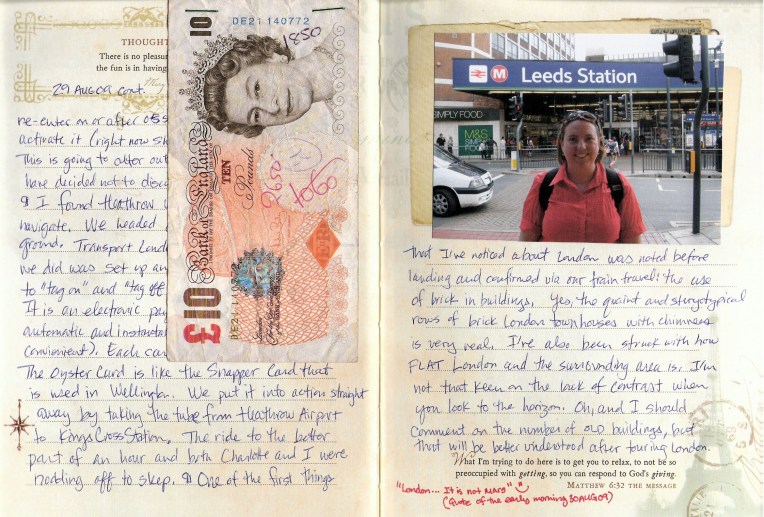 THOUGHT
There is no pleasu
the fun is in having
29 AUG 09 cont.
re-enter on or after
activate it (right now sh
This is going to alter our
have decided not to disc
I found Heathrow
navigate. We headed
ground. Transport Lond
we did was set up an
to "tag on" and "tag off
It is an electronic pay
automatic and instanta
convienient). Each car
The Oyster Card is like the Snapper Card that
is used in Wellington. We put it into action straight
away by taking the tube from Heathrow Airport
to Kings Cross Station. The ride to the better
part of an hour and both Charlotte and I were
nodding off to sleep. One of the first things
10
DE21 140772
1850
Bank of England
TEN
Pounds
£10
DE21 140772
Leeds Station
SIMPLY FOOD
M&S
SIMPLY
FOOD
that I've noticed about London was noted before
landing and confirmed via our train travel: the use
of brick in buildings. Yes, the quaint and storyotypical
rows of brick London townhouses with chimneys
is very real. I've also been struck with how
FLAT London and the surrounding area is. I'm
not that keen on the lack of contrast when
you look to the horizon. Oh, and I should
comment on the number of OLD buildings, but
that will be better understood after touring London.
What I'm trying to do here is to get you to relax, to not be so
preoccupied with getting, so you can respond to God's giving.
MATTHEW 6:32 THE MESSAGE
"London... It is not MARS"
(Quote of the early morning 30AUG09)